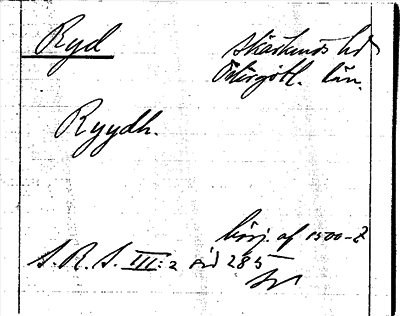 Ryd
Skärkinds hd
Östergötl. län.
Ryydh.
börj. af 1500-t
S. R. S. III:2 sid 285